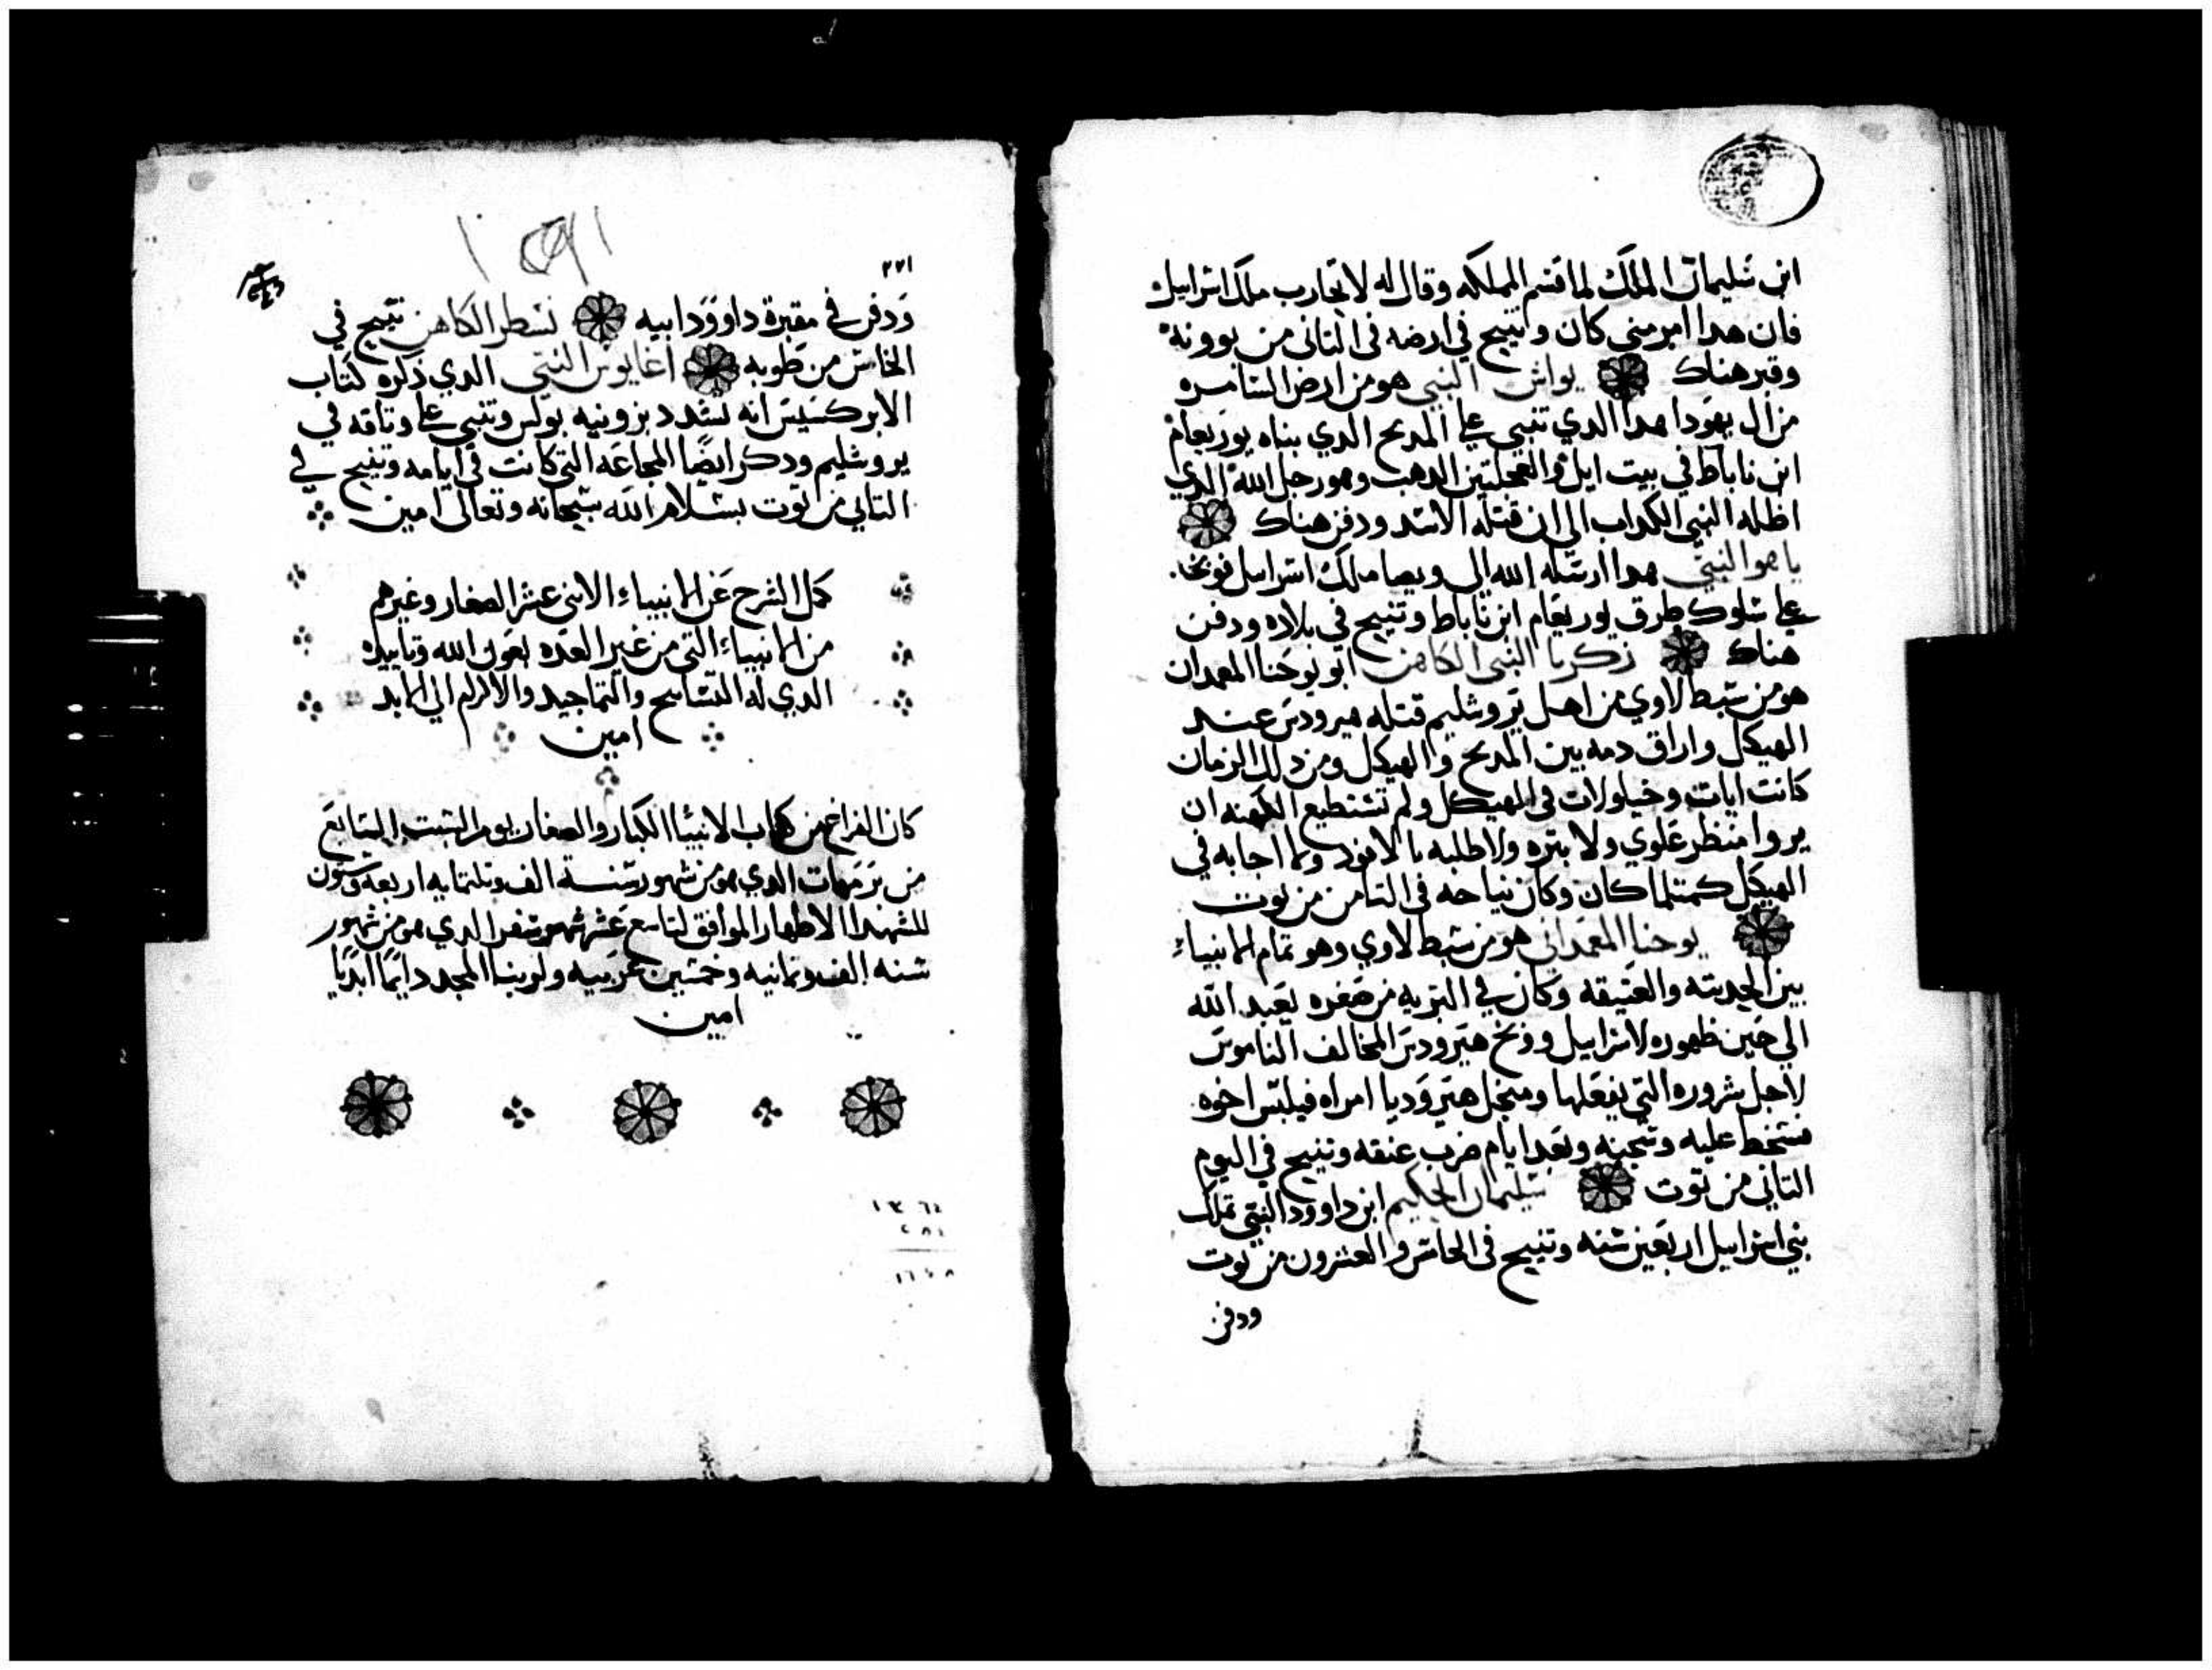 ابن سليمان الملك لما قسم المملكه وقال له لا تحارب ملك اسراييل
فان هدا امر مني كان وتنيح في ارضه في التاني من بوونة
وقبر هناك يواش النبي هو من ارض السامره
من ال يهودا هدا الدي تنبي على المدبح الدي بناه يوربعام
ابن ناباط في بيت ايل والعجلتين الدهب وهو رجل الله الدي
اظله النبي الكداب الى ان قتله الاسد ودفن هناك
ياهو النبي هدا ارسله الله الى وبصا ملك اسراييل فوبخه
على سلوك طرق يوربعام ابن ناباط وتنيح في بلاده ودفن
هناك زكريا النبي الكاهن ابو يوحنا المعمدان
هو من سبط لاوي من اهل يروشليم قتله هيرودس عند
الهيكل واراق دمه بين المدبح والهيكل ومن دلك الزمان
كانت ايات وخيلولات في الهيكل ولم تستطيع الكهنه ان
يروا منظر علوي ولا بتره ولا طلبه بالافود ولا اجابه في
الهيكل كمتلما كان وكان نياحه في التامن من توت
يوحنا المعمداني هو من سبط لاوي وهو تمام الانبياء
بين الحديته والعتيقه وكان في البريه من صغره يعبد الله
الي حين ظهوره لاسراييل ووبخ هيرودس المخالف الناموس
لاجل شروره التي يفعلها ومنجل هيروديا امراه فيلبس اخوه
فسخط عليه وسجنه وبعد ايام ضرب عنقه وتنيح في اليوم
التاني من توت سليمان الحكيم ابن داوود النبي تملك
بني اسراييل اربعين سنه وتنيح في الخامس والعشرون من توت
ودفن
٢٢١
ودفن في مقبرة داوود ابيه نسطر الكاهن تنيح في
الخامس من طوبه اغابوس النبي الدي ذكره كتاب
الابركسيس انه شدد بزونيه بولس وتنبي على وتاقه في
يروشليم ودكر ايضا المجاعه التي كانت في ايامه وتنيح في
التاني من توت بسلام الله سبحانه وتعالى امين
كمل الشرح عن الانبياء الاتني عشر الصغار وغيرهم
من الانبياء التي من غير العده بعون الله وتاييده
الدي له التسابيح والتماجيد والاكرام الي الابد
امين
كان الفراغ من كتاب الانبيا الكبار والصغار يوم السبت السابع
من برمهات الدي هو من شهور سنة الف وتلتمايه اربعه وستون
للشهدا الاطهار الموافق لتاسع عشر شهر سفر الدي هو من شهور
سنه الف وتمانيه وخمسين عربيه ولربنا المجد دايما ابديا
امين
١٣٦٤
٢٨٤
١٦٤٨